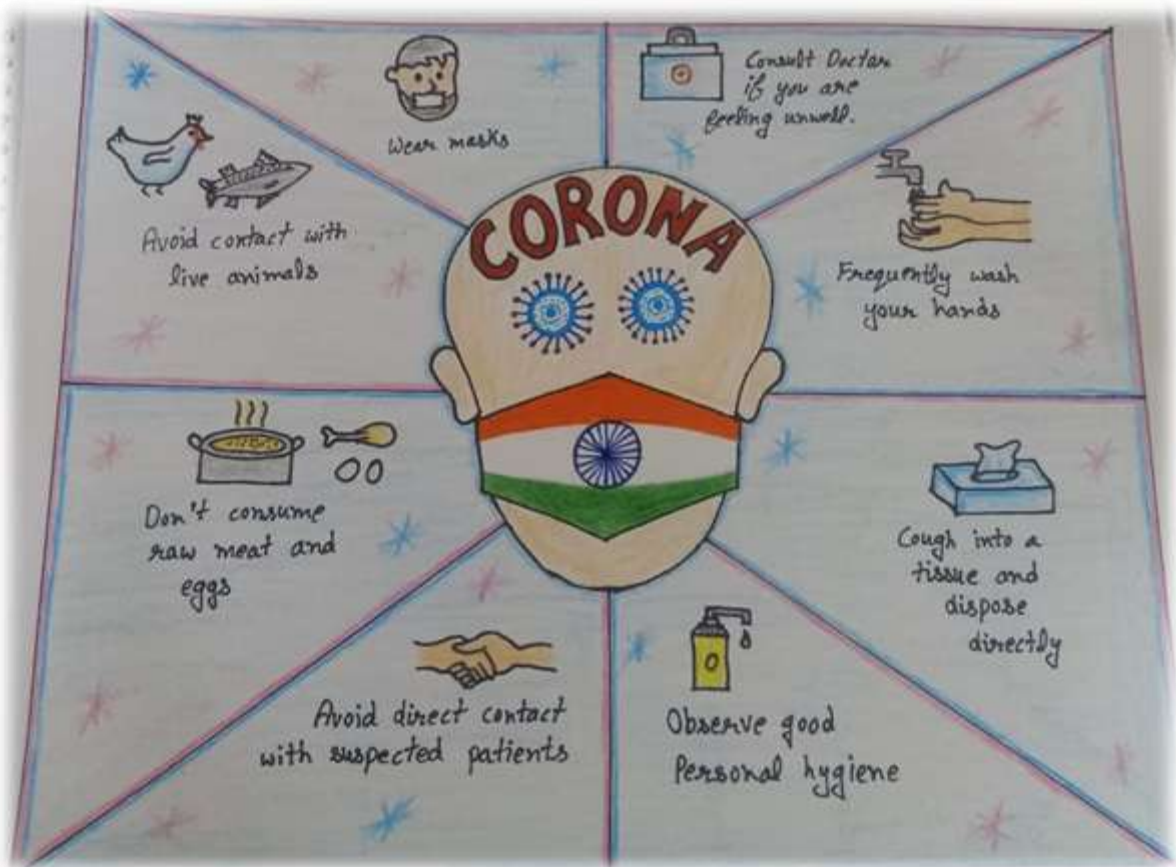 Wear masks
Consult Doctor
if you are
feeling unwell.
CORONA
Avoid contact with
live animals
Frequently wash
your hands
Don't consume
raw meat and
eggs
Cough into a
tissue and
dispose
directly
Avoid direct contact
with suspected patients
Observe good
Personal hygiene